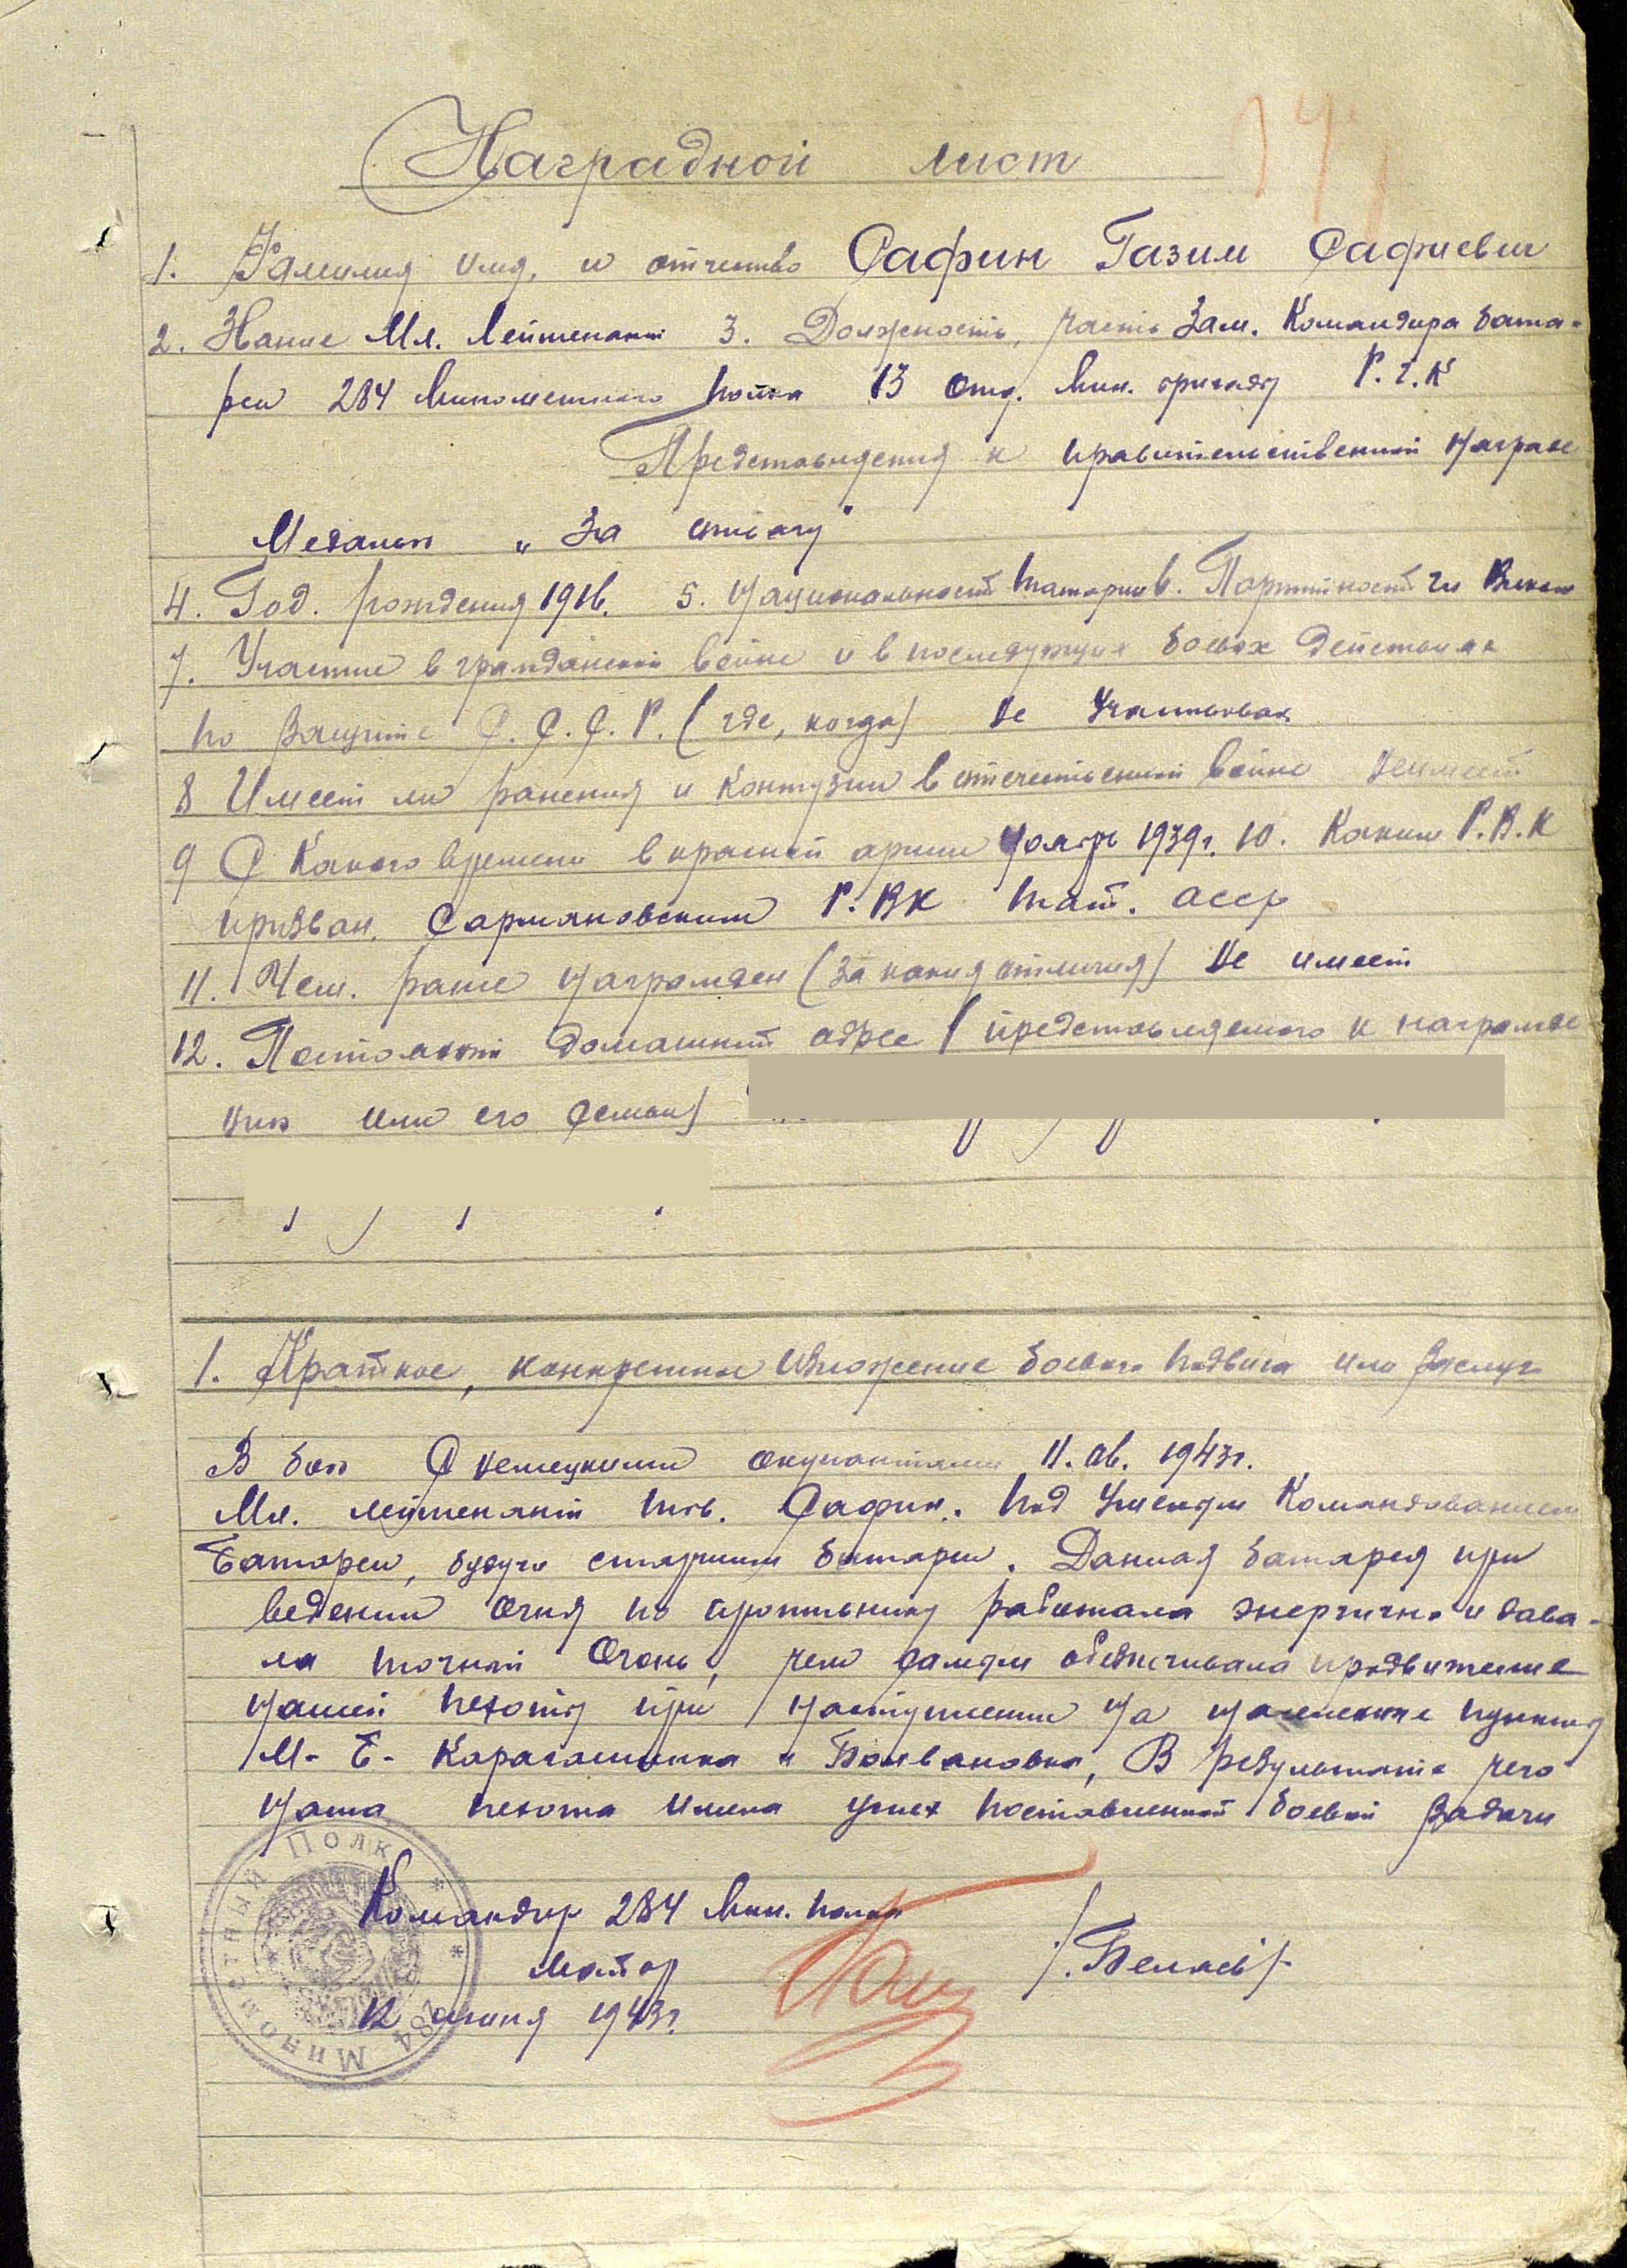 Наградной лист
1. Фамилия имя, и отчество Сафин Газим Сафиевич
2. Звание Мл. Лейтенант 3. Должность, часть Зам. Командира бата-
реи 284 Минометного полка 13 отд. Мин. бригады Р.Г.К
Представления к правительственной награде
Медалью „За отвагу"
4. Год. рождения 1916. 5. Национальност татарин 6. Партийност чл
7. Участие в гражданской войне и в последующих боевых действиях
по защите С.С.С.Р. (где, когда) не участвовал
8 Имеет ли ранения и контузии в отечественной войне неимеет
9 С какого времени в красной армии 1939г. 10. Каким Р.В.К
призван. Сармановским Р.ВК тат. асср
11. Чем. ранее награжден (за какия отличия) не имеет
12. Постоянный домашний адрес (представляемого к награжде
нию или его семьи)
1. Краткое, конкретное изложение боевого подвига или заслуг
В бою с немецкими окупантами 11. ав. 1943г.
Мл. лейтенант тов. Сафин. под умелым командованием
батареи, будучи старшим батареи. Данная батарея при
ведении огня по противнику работала энергично и дава-
ла точный огонь, чем самым обеспечивала продвижение
нашей пехоты при наступлении на населенные пункты
М- Б- и Болвановка, В результате чего
наша пехота имела успех поставленной боевой задачи
Командир 284 Мин. полка
Майор /.Беляев/-
12 1943г.
284 Минометный Полк